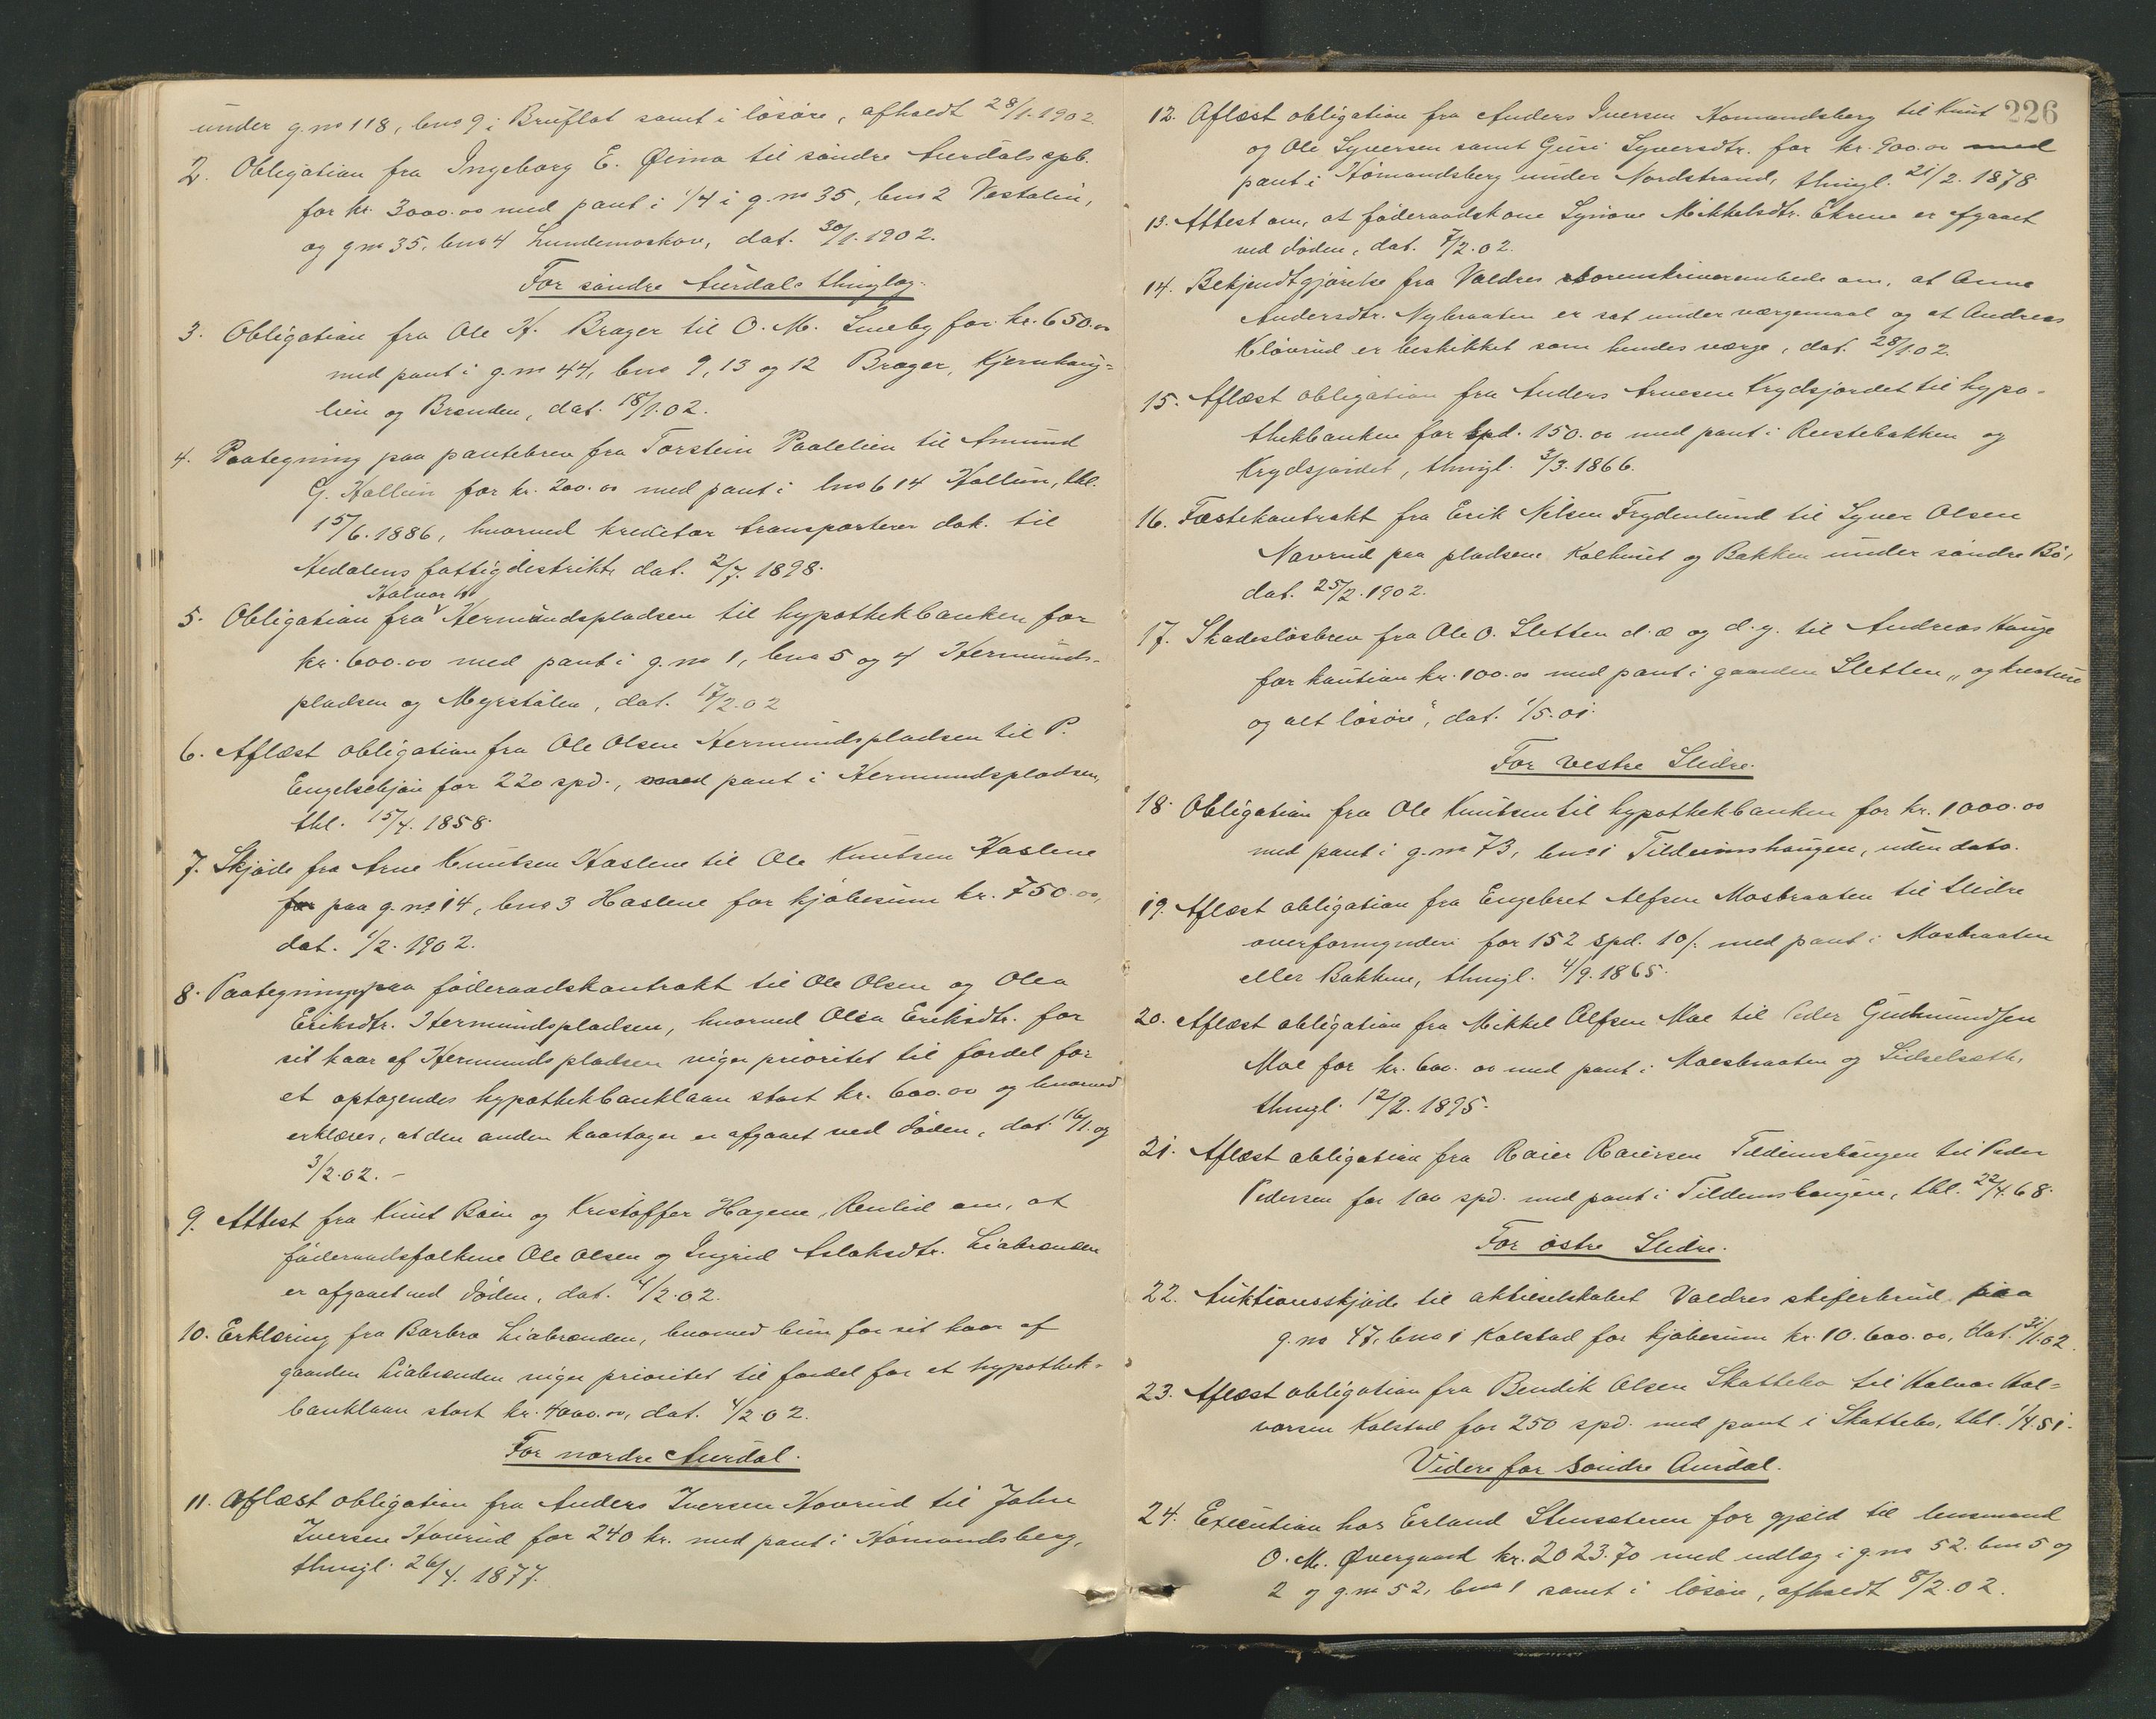 under g.no 118, bno 9 i Bruflat samt i løsøre, afholdt 28/1. 1902
2. Obligation fra Ingeborg E. Øima til søndre Aurdals spb.
for kr. 3000.00 med pant i 1/4 i g.no 35, bno 2 Vestalin,
og gno 35, bno 4 Lundemoskov, dat. 30/1. 1902.
For søndre Aurdals thinglag.
3. Obligation fra Ole H. Brager til O. M. Smeby for kr. 650.00
med pant i g.no 44, bno 9, 13 og 12 Brager, Kjernhaug-
lien og Brænden, dat. 18/1. 02.
4. Paategning paa pantebrev fra Torstein Paalelien til Amund
G. Hallun for kr. 200.00 med pant i lno 614 Hallun, thl.
15/6. 1886, hvorved kreditor transporterer dok. til
Hedalens fattigdistrikt dat. 2/7. 1898.
Halvor H.
5. Obligation fra Hermundspladsen til hypothekbanken for
kr. 600.00 med pant i g.no 1, bno 5 og 4 Hermunds-
pladsen og Myrstølen, dat. 17/2. 02
6. Aflæst obligation fra Ole Olsen Hermundspladsen til P.
Engelsebjon for 220 spd., med pant i Hermundspladsen,
thl. 15/4. 1858.
7. Skjøde fra Arne Knutsen Haslene til Ole Knutsen Haslene
for paa g.no 14, bno 3 Haslene for kjøbesum kr. 750.00,
dat. 1/2. 1902.
8. Paategning paa føderaadskontrakt til Ole Olsen og Olea
Eriksdtr. Hermundspladsen, hvorved Olea Eriksdtr. for
sit kaar af Hermundspladsen viger prioritet til fordel for
et optagendes hypothekbanklaan stort kr. 600.00 og hvorved
erklæres, at den anden kaartager er afgaaet ved døden, dat. 16/1. og
3/2. 02. –
9. Attest fra Knut Bøin og Kristoffer Hagene, Renlid om, at
føderaadsfolkene Ole Olsen og Ingrid Aslaksdtr. Liabrænden
er afgaaet ved døden, dat. 4/2. 02.
10. Erklæring fra Barbro Liabrænden, hvorved hun for sit kaar af
gaarden Liabrænden viger prioritet til fordel for et hypothek-
banklaan stort kr. 4000.00, dat. 4/2 02.
For nordre Aurdal.
11. Aflæst obligation fra Anders Iversen Hovrud til John
Iversen Hovrud for 240 kr. med pant i Homandsberg,
thingl. 26/4. 1877.
226
12. Aflæst obligation fra Anders Iversen Homandsberg til Knut
og Ole Syversen samt Guri Syversdtr. for kr. 900.00 med
pant i Homandsberg under Nordstrand, thingl. 21/2. 1878
13. Attest om, at føderaadskone Synøve Mikkelsdtr. Ekrene er afgaaet
ved døden, dat. 7/2. 02.
14. Bekjendtgjørelse fra Valdres sorenskriverembede om, at Anne
Andersdtr. Nybraaten er sat under værgemaal og at Andreas
Kløvrud er beskikket som hendes værge, dat. 28/1. 02.
15. Aflæst obligation fra Anders Arnesen Krydsjordet til hypo-
thekbanken for spd. 150.00 med pant i Reistebakken og
Krydsjordet, thingl. 3/3. 1866.
16. Fæstekontrakt fra Erik Nilsen Frydenlund til Syver Olsen
Navrud paa pladsene Kolhuset og Bakken under søndre Bø,
dat. 25/2. 1902.
17. Skadesløsbrev fra Ole O. Sletten d.æ og d.y. til Andreas Hauge
for kaution kr. 100.00 med pant i gaarden Sletten „og kreature
og alt løsøre", dat. 1/5. 01.
For vestre Slidre.
18. Obligation fra Ole Knutsen til hypothekbanken for kr. 1000.00
med pant i g.no 73, bno 1 Tildeimshaugen, uden dato.
19. Aflæst obligation fra Engebret Alfsen Mosbraaten til Slidre
overformynderi for 152 spd. 10/. med pant i Mosbraaten
eller Bakkene, thingl. 4/9. 1865.
20. Aflæst obligation fra Mikkel Olfsen Moe til Peder Gudmundsen
Moe for kr. 600.00 med pant i Moesbraaten og Sidselseth,
thingl. 12/2. 1895.
21. Aflæst obligation fra Raier Raiersen Tildeimshaugen til Peder
Pedersen for 100 spd. med pant i Tildeimshaugen, thl. 22/4. 68.
For østre Slidre.
22. Auktionsskjøde til aktieselskabet Valdres skiferbrud paa
g.no 47, bno 1 Kolstad for kjøbesum kr. 10.600.00, dat. 31/1. 02.
23. Aflæst obligation fra Bendik Olsen Skattebo til Halvor Hal-
vorsen Kolstad for 250 spd. med pant i Skattebo, thl. 1/4. 51.
Videre for Søndre Aurdal.
24. Execution hos Erland Stensæteren for gjæld til lensmand
O. M. Øvergaard kr. 2023.70 med udlæg i g.no 52. bno 5 og
2 og g.no 52, bno 1 samt i løsøre, afholdt 8/2. 02.